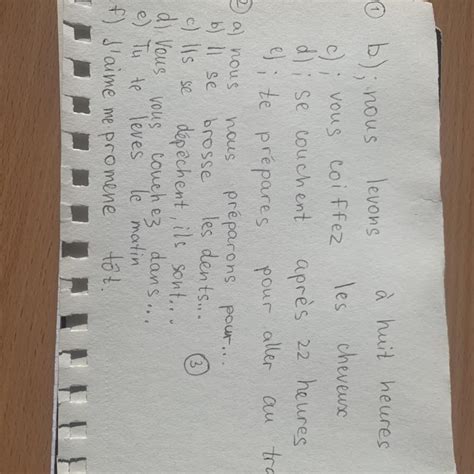 ① b) ; nous levons à huit heures
c) ; vous coiffez les cheveux
d) ; se couchent après 22 heures
e) ; te prépares pour aller au tra
② a) nous nous préparons pour...
b) Il se brosse les dents...
c) Ils se dépêchent, ils sont... ③
d) Vous vous couchez dans...
e) Tu te leves le matin
f) J'aime me promene tôt.